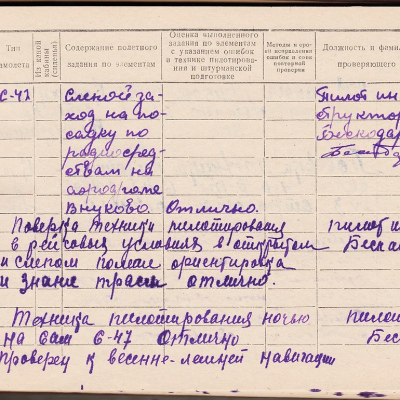 Тип
самолета
Из какой
кабины
(сиденья)
Содержание полетного
задания по элементам
Оценка выполненного
задания по элементам
с указанием ошибок
в технике пилотирования
и штурманской
подготовке
Методы и сро-
ки исправления
ошибок и срок
повторной
проверки
Должность и фами
проверяющего
С-47
Слепой за-
ход на по-
садку по
радиосред-
ствам на
аэродроме
Внуково. Отлично.
Пилот ин
структор
Поверка техники пилотирования
в рейсовых условиях в открытом
и слепом полете ориентировка
и знание трассы отлично.
пилот и
Техника пилотирования ночью
на сам С-47 Отлично
Проверен к весенне-летней навигации
пило
Бес